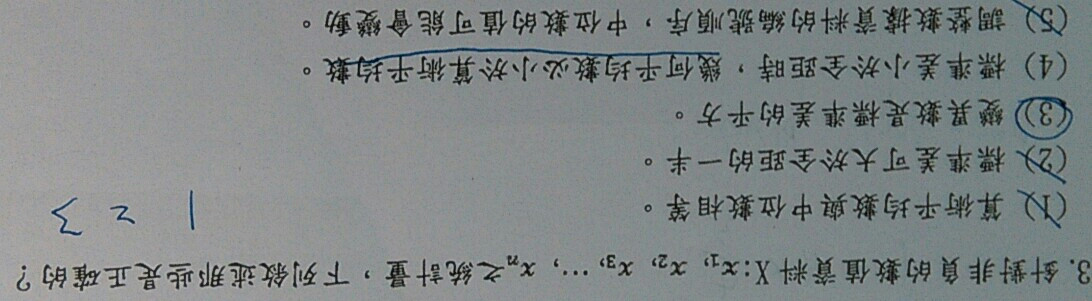 3. 針對非負的數值資料 X:x₁, x₂, x₃, …, xₙ之統計量，下列敘述那些是正確的？
1 2 3
(1) 算術平均數與中位數相等。
(2) 標準差可大於全距的一半。
(3) 變異數是標準差的平方。
(4) 標準差小於全距時，幾何平均數必小於算術平均數。
(5) 調整數據資料的編號順序，中位數的值可能會變動。